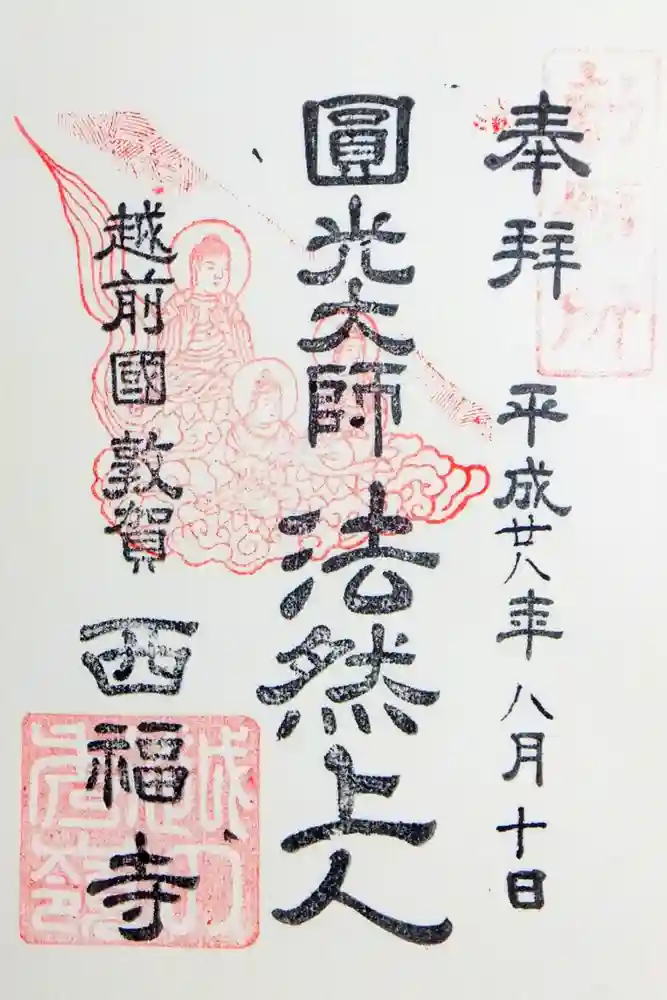 奉拝
平成廿八年八月十日
圓光大師法然上人
越前國敦賀
西福寺